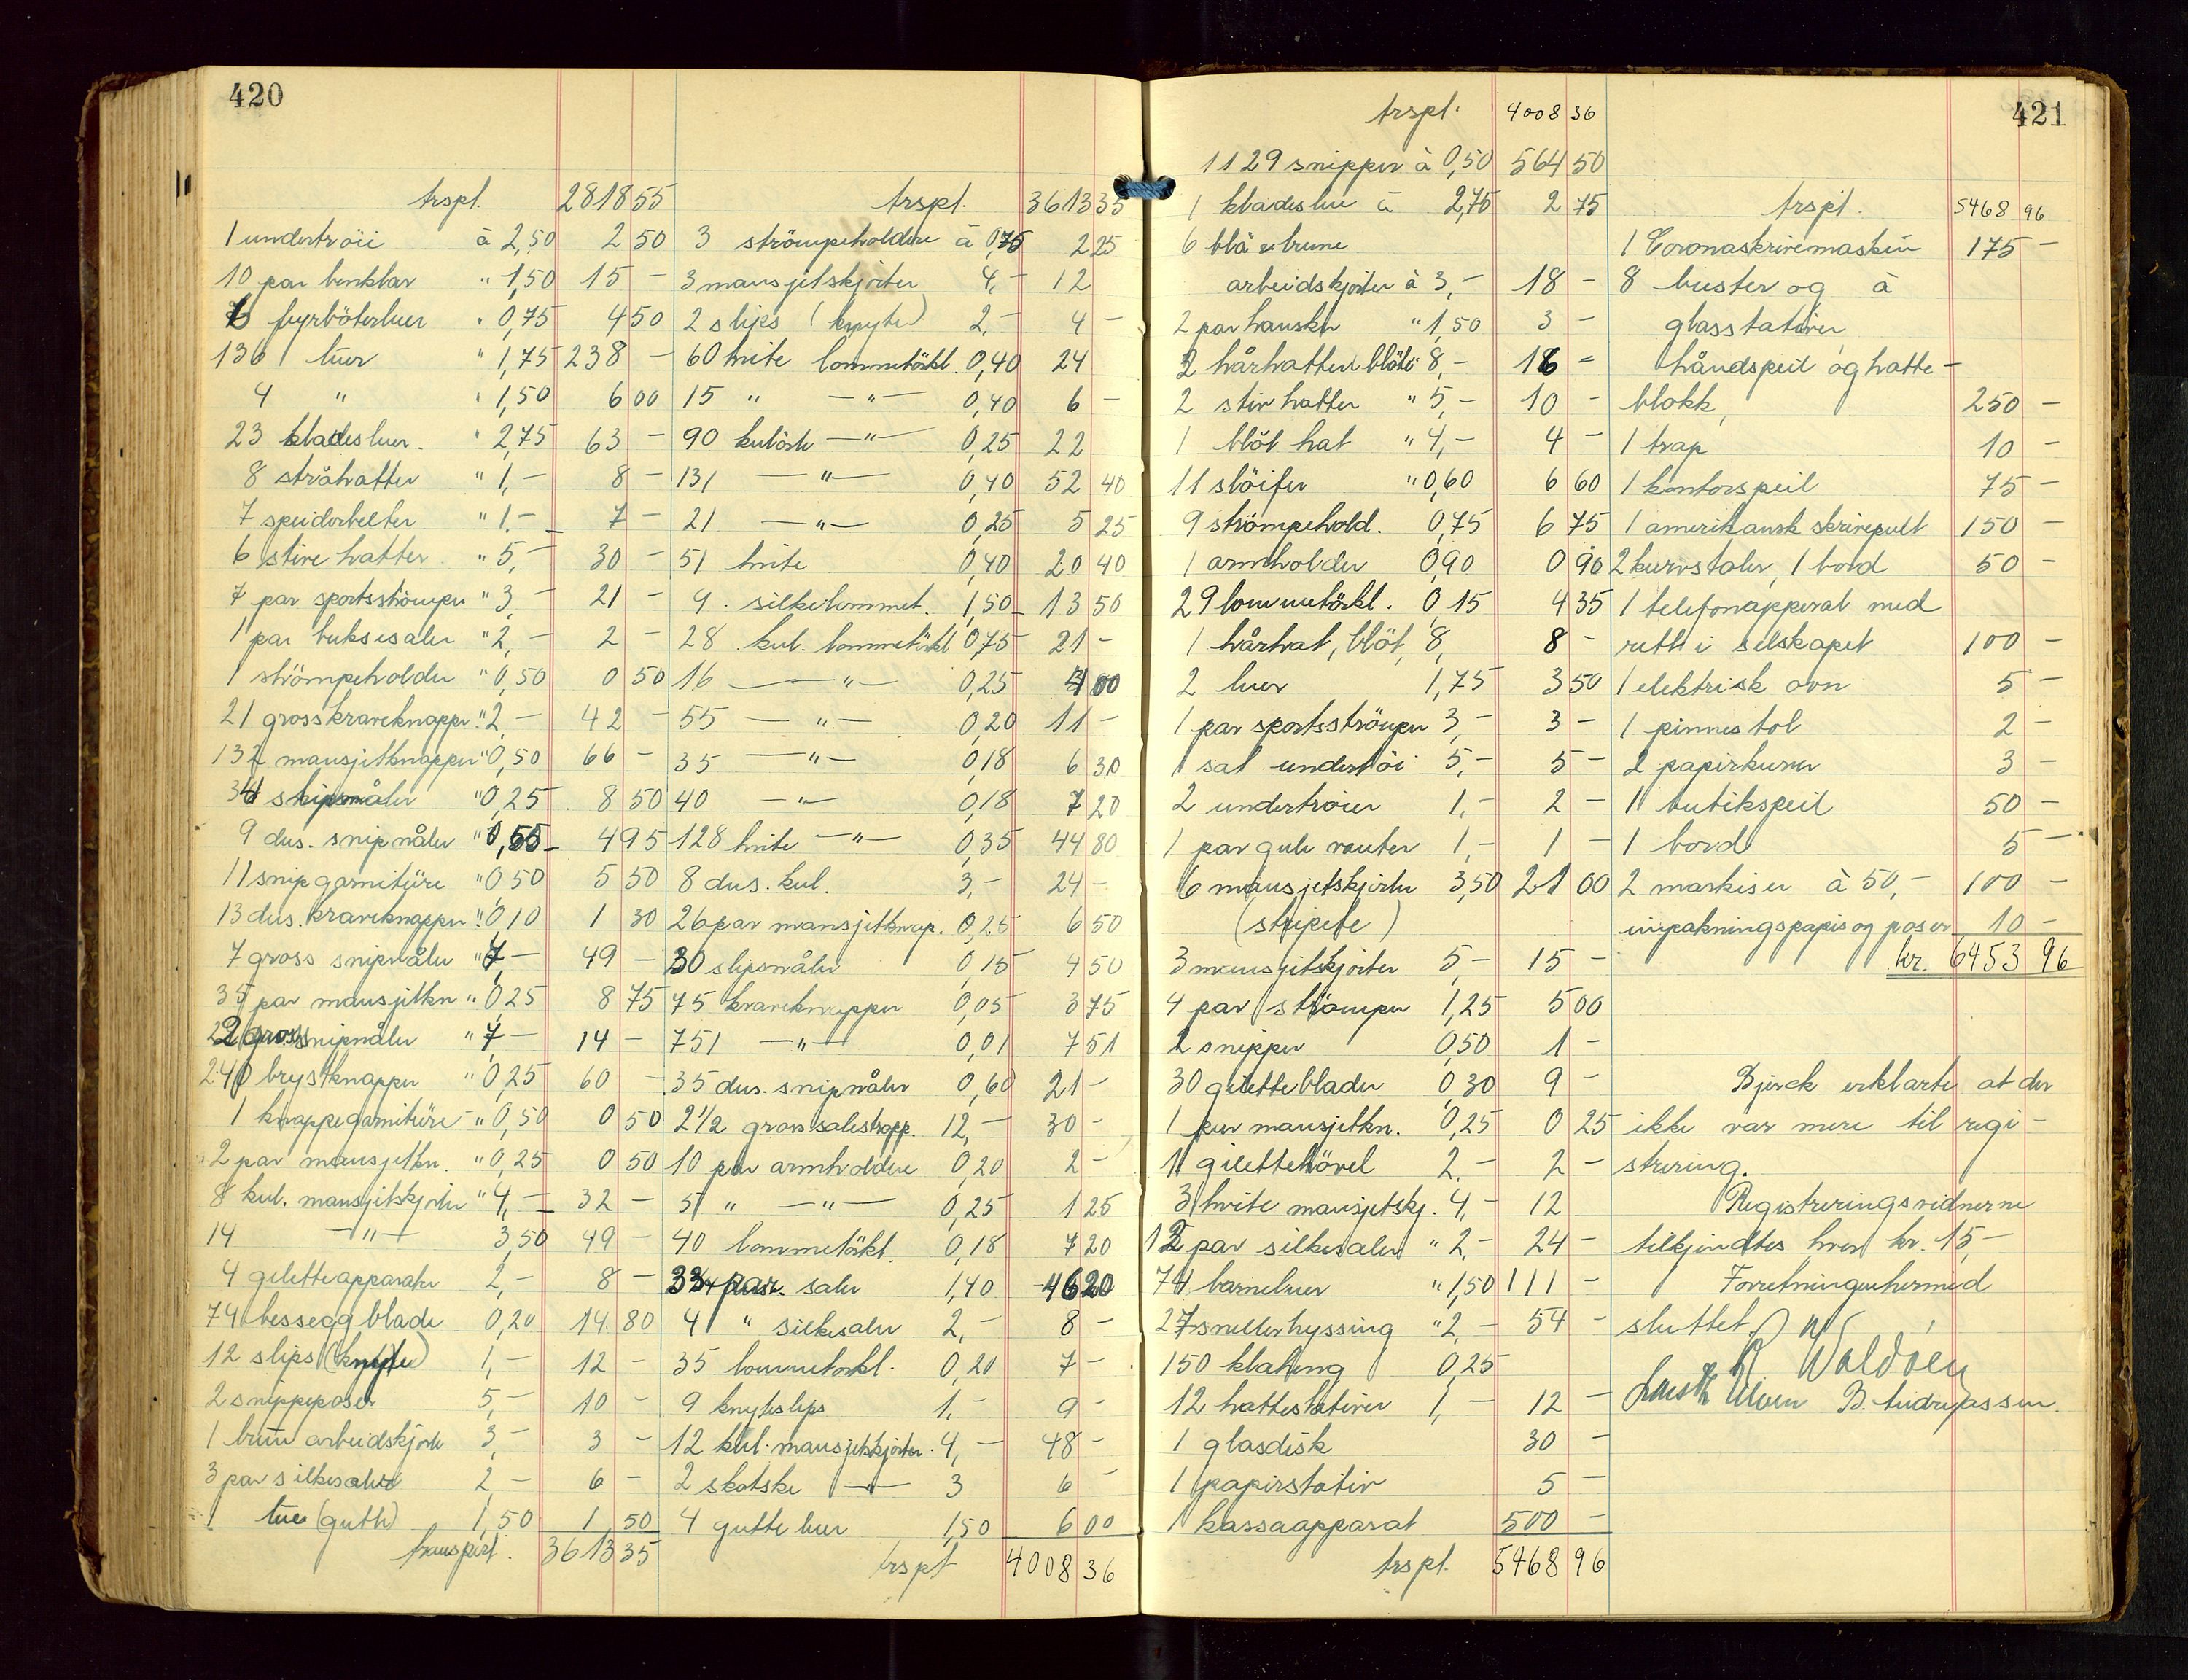 420
trspl. 2818 55
1 undertröie à 2,50 2 50
10 par benklær " 1,50 15 -
6 fyrböterluer " 0,75 4 50
136 luer " 1,75 238 -
4 " " 1,50 6 00
23 kladesluer " 2,75 63 -
8 stråhatter " 1,- 8 -
7 speiderbelter " 1.- 7 -
6 stive hatter " 5,- 30 -
7 par sportsströmper " 3,- 21 -
1 par buksesaler " 2,- 2 -
1 strömpeholder " 0,50 0 50
21 gross kraveknapper " 2,- 42 -
132 mansjetknapper " 0,50 66 -
34 slipsnåler " 0,25 8 50
9 dus. snipnåler " 0,55 4 95
11 snipgarnitüre " 0,50 5 50
13 dus. kraveknapper " 0,10 1 30
7 gross snipnåler " 7,- 49 -
35 par mansjetkn " 0,25 8 75
2 gross snipnåler " 7,- 14 -
240 brystknapper " 0,25 60 -
1 knappegarnitüre " 0,50 0 50
2 par mansjetkn. " 0,25 0 50
8 kul. mansjetskjorter " 4,- 32 -
14 - " - 3,50 49 -
4 giletteapparater 2,- 8 -
74 bessegg blade 0,20 14.80
12 slips (knyte) 1,- 12 -
2 snippeposer 5,- 10 -
1 brun arbeidskjorte 3,- 3 -
3 par silkesaler 2,- 6 -
1 lue (gutte) 1,50 1 50
transport. 3613 35
trspl. 3613 35
3 strömpeholdere à 0,75 2 25
3 mansjetskjorter 4,- 12
2 slips (knyte) 2,- 4 -
60 hvite lommetörkl. 0,40 24
15 " - " - 0,40 6 -
90 kulörte - " - 0,25 22
131 - " - 0,40 52 40
21 - " - 0,25 5 25
51 hvite 0,40 20 40
9 . silkelommet. 1,50 13 50
28 . kul. lommetörkl 0,75 21 -
16 - " - 0,25 4 00
55 - " - 0,20 11 -
35 - " - 0,18 6 30
40 - " - 0,18 7 20
128 hvite - " - 0,35 44 80
8 dus. kul. 3,- 24 -
26 par mansjetknap. 0,25 6 50
30 slipsnåler 0,15 4 50
75 kraveknapper 0,05 3 75
751 - " - 0,01 7 51
35 dus. snipnåler 0,60 21 -
2 1/2 gross salestropp. 12,- 30 -
10 par armholdere 0,20 2 -
5 " - " - 0,25 1 25
40 lommetörkl. 0,18 7 20
33 par saler 1,40 46 20
4 " silkesaler 2,- 8 -
35 lommetörkl. 0,20 7 -
9 knyteslips 1,- 9 -
12 kul. mansjetskjorter. 4,- 48 -
2 skotske - " - 3 6 -
4 gutte luer 1,50 6 00
trspt 4008 36
421
trspl. 4008 36
1129 snipper à 0,50 564 50
1 kladeslue à 2,75 2 75
6 blå & brune
arbeidskjorter à 3,- 18 -
2 par hansker " 1,50 3 -
2 hårhatter blöte 8,- 16 -
2 stive hatter " 5,- 10 -
1 blöt hat " 4,- 4 -
11 slöifer " 0,60 6 60
9 strömpehold. 0,75 6 75
1 armholder 0,90 0 90
29 lommetörkl. 0,15 4 35
1 hårhat, blöt, 8, 8 -
2 luer 1,75 3 50
1 par sportsströmper 3,- 3 -
1 sat undertöi 5,- 5 -
2 undertröier 1,- 2 -
1 par gule vanter 1,- 1 -
6 mansjetskjorter 3,50 21 00
(stripete)
3 mansjetskjorter 5,- 15 -
4 par strömper 1,25 5 00
2 snipper 0,50 1 -
30 giletteblader 0,30 9 -
1 par mansjetkn. 0,25 0 25
1 gilettehövel 2,- 2 -
3 hvite mansjetskj. 4,- 12
12 par silkesaler " 2,- 24 -
74 barneluer " 1,50 111 -
27 sneller hyssing " 2,- 54 -
150 klaheng 0,25
12 hattestativer 1,- 12 -
1 glasdisk 30 -
1 papirstativ 5 -
1 kassaapparat 500 -
trspl. 5468 96
trspl. 5468 96
1 Coronaskrivemaskin 175 -
8 buster og à
glasstativer,
håndspeil og hatte-
blokk, 250 -
1 trap 10 -
1 kontorspeil 75 -
1 amerikansk skrivepult 150 -
2 kurvstoler, 1 bord 50 -
1 telefonapperat med
rett i selskapet 100 -
1 elektrisk ovn 5 -
1 pinnestol 2 -
2 papirkurver 3 -
1 butikspeil 50 -
1 bord 5 -
2 markiser à 50,- 100 -
inpakningspapir og poser 10 -
kr. 6453 96
Bjerck erklærte at der
ikke var mere til regi-
strering.
Registreringsvidnerne
tilkjendtes hver kr. 15,-
Forretningen hermed
sluttet.
Waldöen
Ulven B. Andreassen.